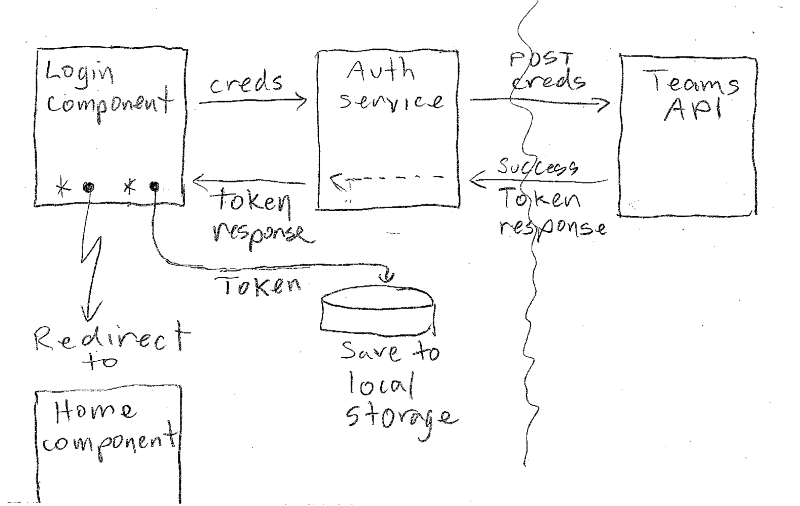 Login
component
creds
Auth
service
POST
creds
Teams
API
* *
token
response
Success
Token
response
Token
Redirect
to
Save to
local
storage
Home
component